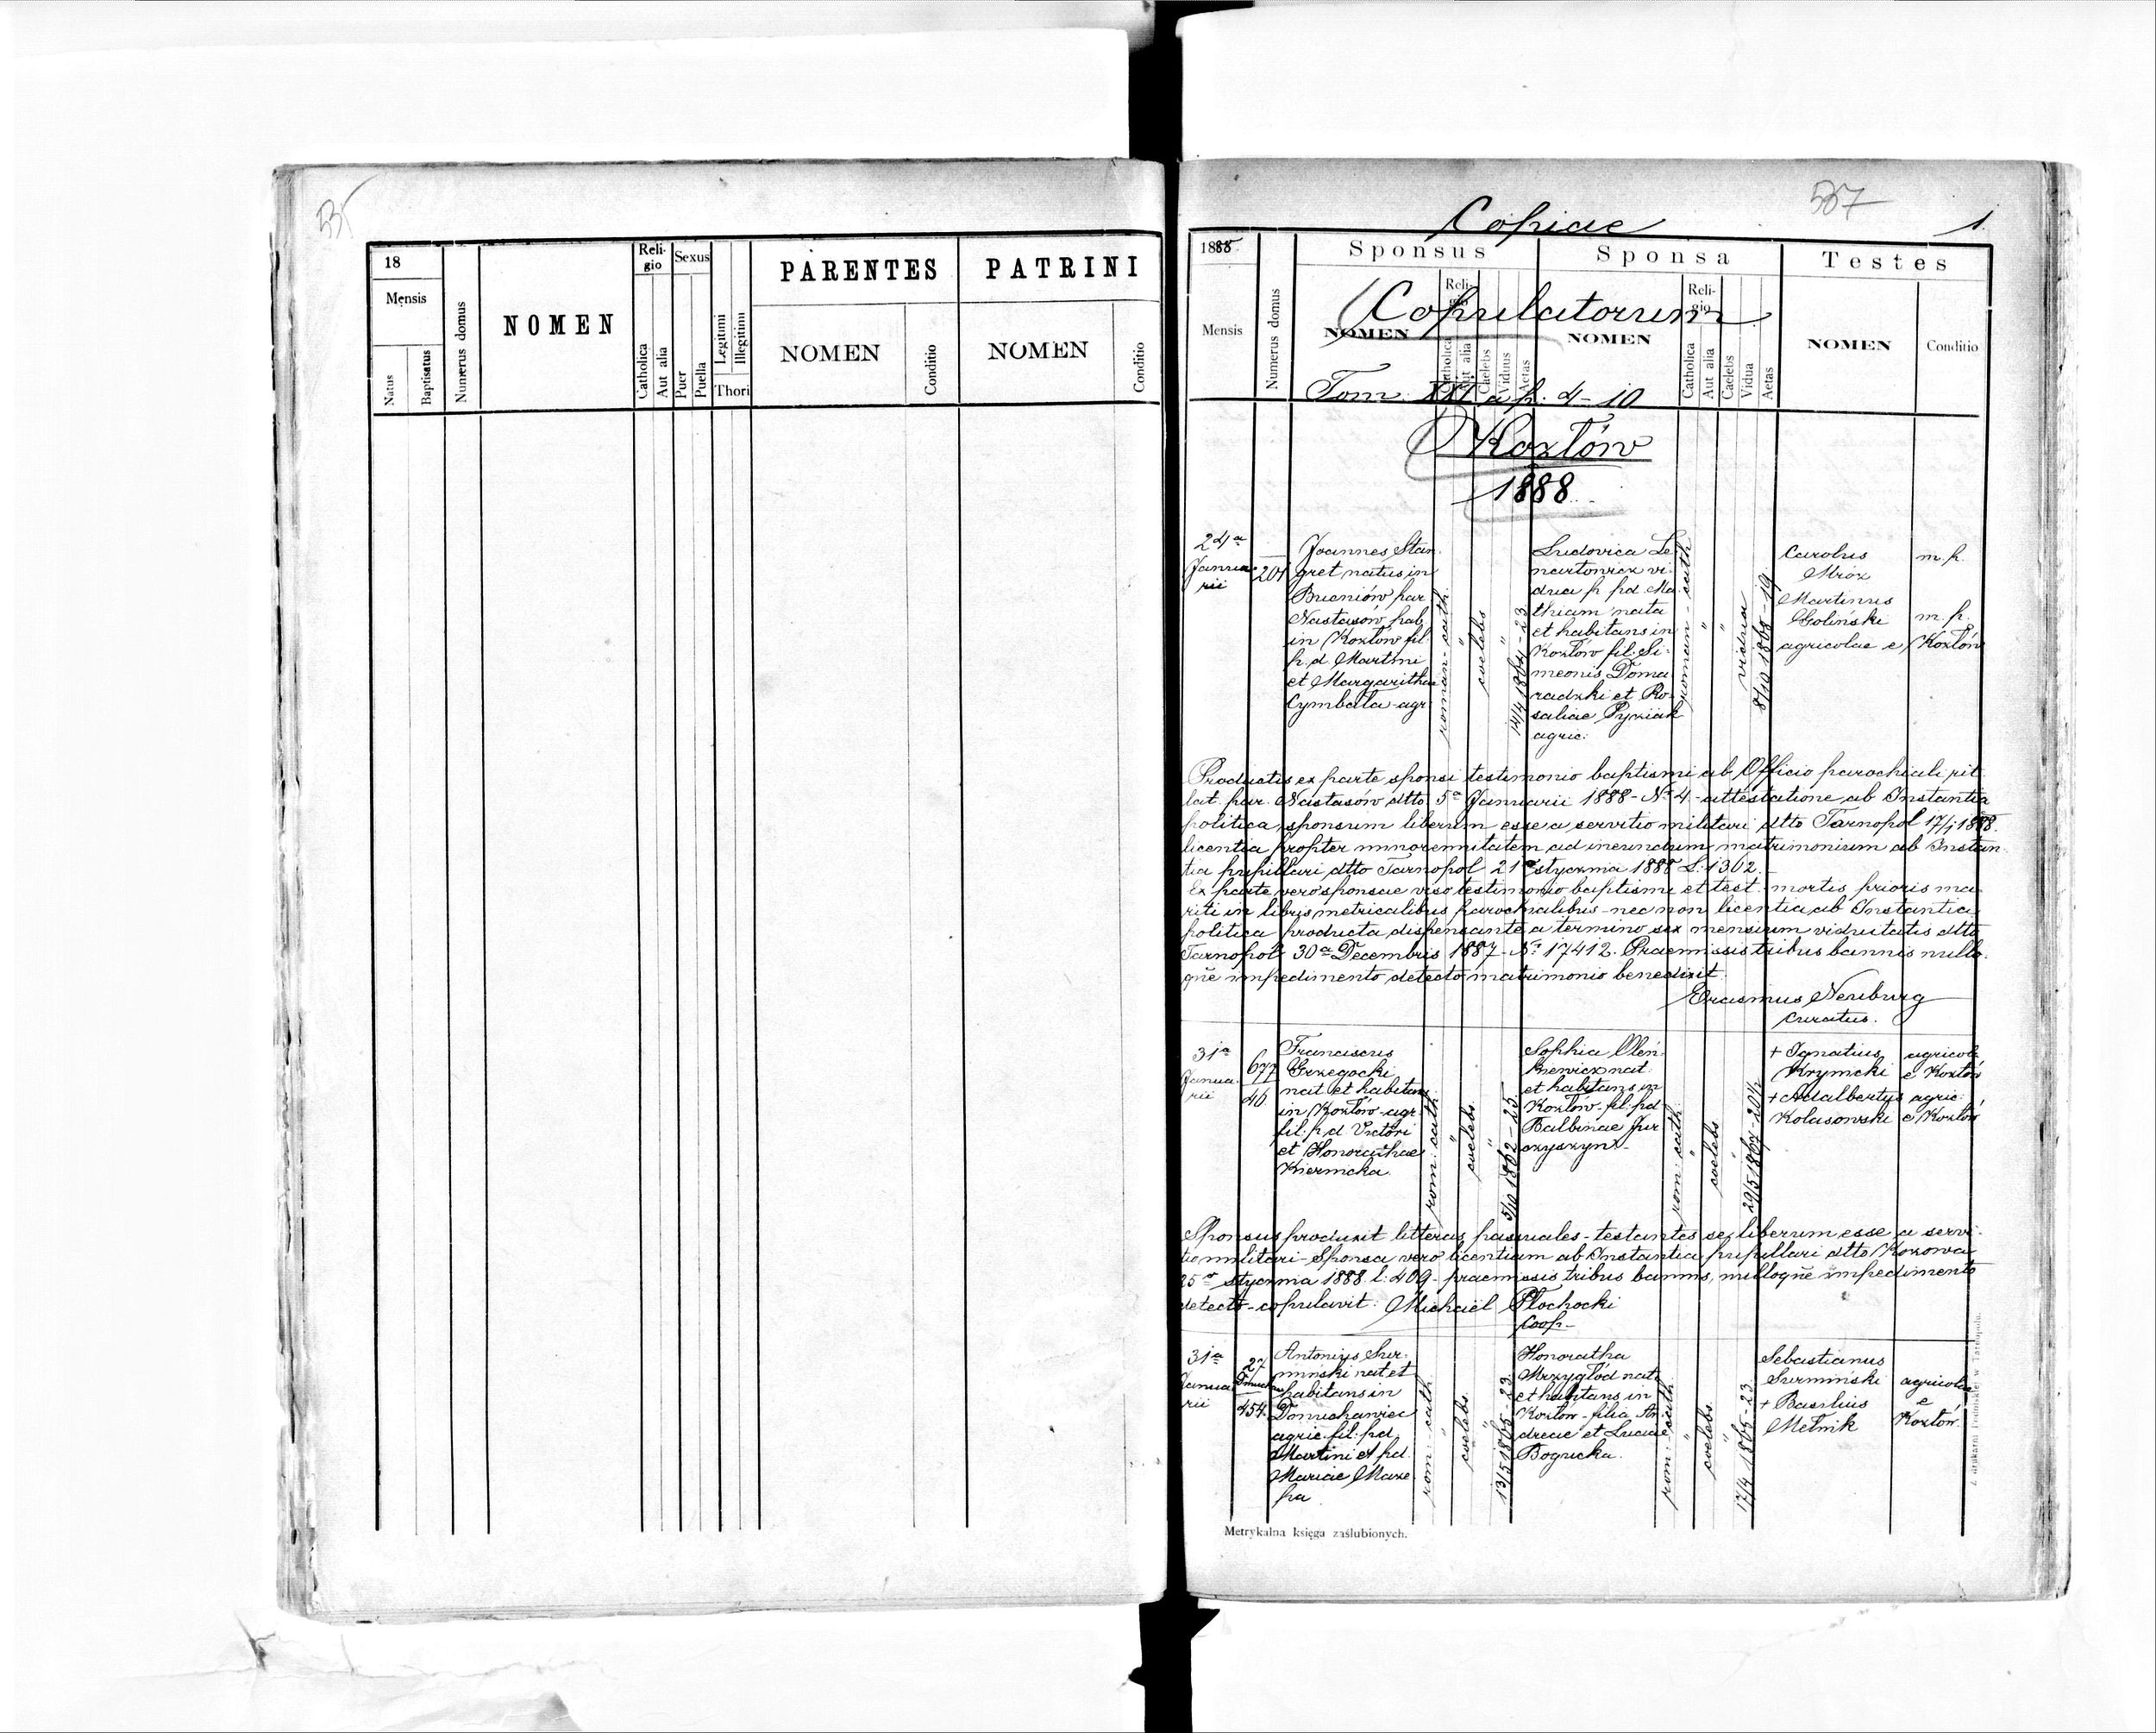 18
Mensis
Natus
Baptisatus
Numerus domus
NOMEN
Reli-
gio
Catholica
Aut alia
Sexus
Puer
Puella
Legitimi
Illegitimi
Thori
PARENTES
NOMEN
Conditio
PATRINI
NOMEN
Conditio
537
Copiae
1.
1888
Mensis
Numerus domus
Sponsus
NOMEN
Reli-
gio
Catholica
Aut alia
Caelebs
Viduus
Aetas
Sponsa
NOMEN
Reli-
gio
Catholica
Aut alia
Caelebs
Vidua
Aetas
Testes
NOMEN
Conditio
Copulatorum
Tom. XXI a p. 4-10
Kozłów
1888
24a
Janua-
rii
201
Joannes Stan-
gret natus in
Bucniów par
Nastasów hab.
in Kozłów fil.
p. d. Martini
et Margarithae
Cymbala - agr.
roman - cath.
"
coelebs
"
14/4 1864 - 23
Ludovica Le-
nartowicz vi-
dua p. pd Ma-
thiam nata
et habitans in
Kozłów fil. Si-
meonis Doma-
radzki et Ro-
saliae Pyziak
agric.
roman - cath
"
"
vidua
8/10 1868 - 19
Carolus
Mróz
m. p.
Martinus
Goliński
m. p.
agricolae e Kozłów
Productis ex parte sponsi testimonio baptismi ab Officio parochiali rit.
lat. par. Nastasów dtto 5a Januarii 1888 - No 4 - attestatione ab Instantia
politica, sponsum liberum esse a servitio militari dtto Tarnopol 17/1 1888.
licentia propter minorennitatem ad ineundum matrimonium ab Instan-
tia pupillari dtto Tarnopol 21o stycznia 1888 L. 1362.
Ex parte vero sponsae viso testimonio baptismi et test. mortis prioris ma-
riti in libris metricalibus parochialibus - nec non licentia ab Instantia
politica producta dispensante a termino sex mensium viduitatis dtto
Tarnopol 30a Decembris 1887 No 17412. Praemissis tribus bannis nullo-
que impedimento detecto matrimonio benedixit
Erasmus Neuburg
Curatus.
31a
Janua-
rii
677
46
Franciscus
Grzegocki
nat. et habitan.
in Kozłów - agr.
fil. p. d. Victori
et Honorathae
Kiernicka.
rom: cath
"
coelebs
"
5/10 1862 - 25
Sophia
nat.
et habitans in
Kozłów - fil. pd
Balbinae
rom: cath.
"
coelebs
"
29/5 1867 - 20½
+ Ignatius
Krynicki
agricola
e Kozłów
+ Adalbertus
Kolasowski
agric.
e Kozłów
Sponsus produxit litteras passuales - testantes se liberum esse a servi-
tio militari - Sponsa vero licentiam ab Instantia pupillari dtto Kozowa
25o stycznia 1888 l: 409 - praemissis tribus bannis, nulloque impedimento
detecto - copulavit: Michaël Płochocki
Coop -
31a
Janua-
rii
27
454
Antonius Sur-
miński nat et
habitans in
Domuchawiec
agric. fil. pd.
Martini et pd.
Mariae Maze-
pa
rom: cath
"
coelebs.
"
13/5 1865 - 23
Honoratha
Mrzygłód nata
et habitans in
Kozłów - filia An-
dreae et Luciae
Bogucka.
rom: cath
"
coelebs.
"
17/4 1865 - 23
Sebastianus
Surmiński
+ Basilius
Melnik
agricolae
e
Kozłów.
Metrykalna księga zaślubionych.